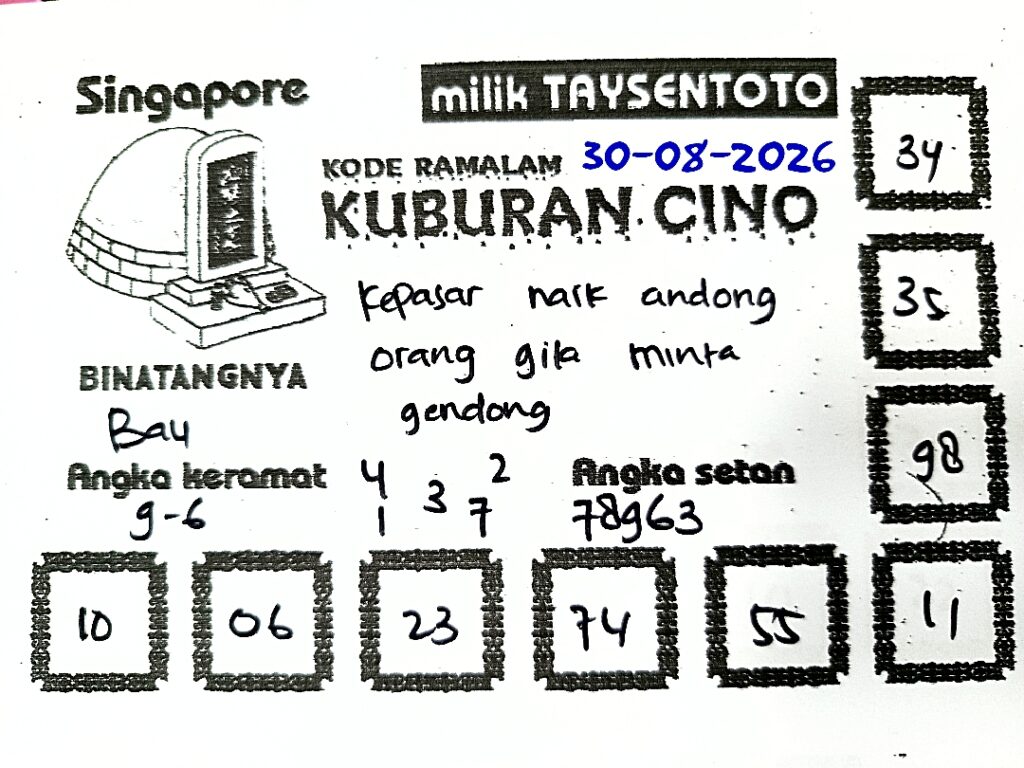 Singapore
milik TAYSENTOTO
KODE RAMALAM 30-08-2026
KUBURAN CINO
kepasar naik andong
orang gila minta
gendong
BINATANGNYA
Bau
Angka keramat
9-6
4 3 2
1 7
Angka setan
78963
34
35
98
11
10 06 23 74 55